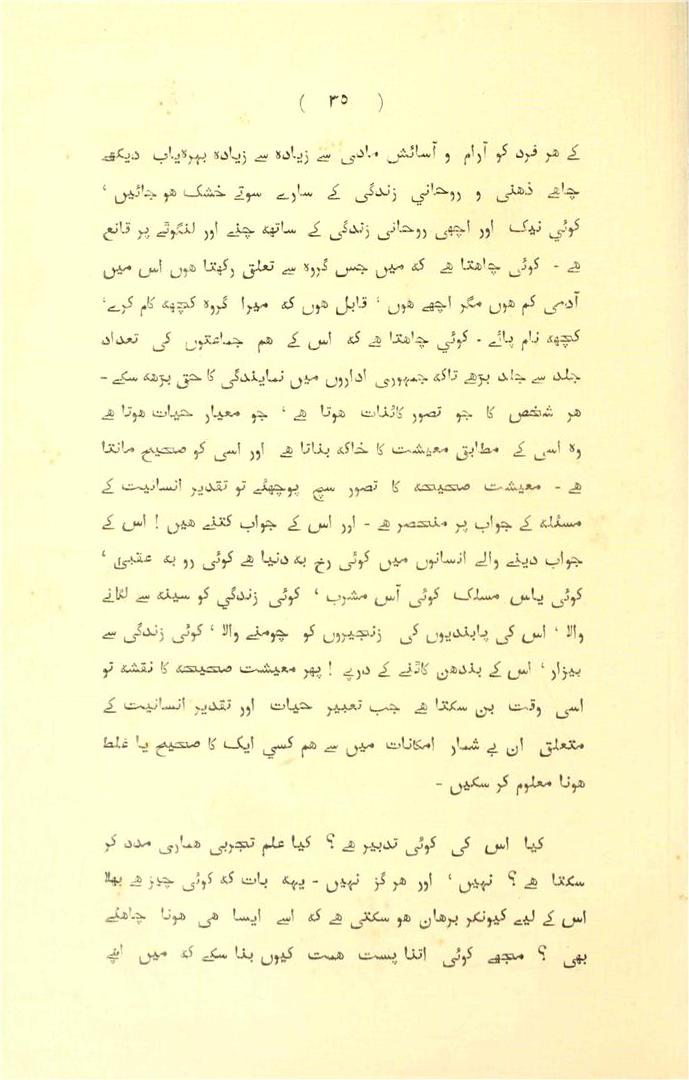 ( ۳۵ )
کے ھر فرد کو آرام و آسائش مادی سے زیادہ سے زیادہ بہرہیاب دیکھے
چاھے ذھنی و روحاني زندگی کے سارے سوتے خشک ھو جائیں ،
کوئي نیک اور اچھی روحانی زندگی کے ساتھہ چنے اور لنگوٹے پر قانع
ھے - کوئی چاھتا ھے کہ میں جس گروہ سے تعلق رکھتا ھوں اس میں
آدمی کم ھوں مگر اچھے ھوں ، قابل ھوں کہ میرا گروہ کچھہ کام کرے،
کچھہ نام پائے - کوئي چاھتا ھے کہ اس کے ھم جماعتوں کی تعداد
جلد سے جلد بڑھے تاکہ جمہوری اداروں میں نمایندگی کا حق بڑھہ سکے -
ھر شخص کا جو تصور کائنات ھوتا ھے ، جو معیار حیات ھوتا ھے
وہ اسی کے مطابق معیشت کا خاکہ بناتا ھے اور اسی کو صحیح مانتا
ھے - معیشت صحیحہ کا تصور سچ پوچھئے تو تقدیر انسانیت کے
مسئلہ کے جواب پر منحصر ھے - اور اس کے جواب کتنے ھیں ! اس کے
جواب دینے والے انسانوں میں کوئی رخ بہ دنیا ھے کوئی رو بہ عقبیٰ ،
کوئی یاس مسلک کوئی آس مشرب ، کوئی زندگي کو سینہ سے لگانے
والا ، اس کی پابندیوں کی زنجیروں کو چومنے والا ، کوئی زندگی سے
بیزار ، اس کے بندھن کاٹنے کے درپے ! پھر معیشت صحیحہ کا نقشہ تو
اسی وقت بن سکتا ھے جب تعبیر حیات اور تقدیر انسانیت کے
متعلق ان بے شمار امکانات میں سے ھم کسي ایک کا صحیح یا غلط
ھونا معلوم کر سکیں -
کیا اس کی کوئی تدبیر ھے ؟ کیا علم تجربی ھماری مدد کر
سکتا ھے ؟ نہیں ، اور ھر گز نہیں - یہہ بات کہ کوئی چیز ھے بھلا
اس کے لیے کیونکر برھان ھو سکتی ھے کہ اسے ایسا ھی ھونا چاھئے
بھی ؟ مجھے کوئی اتنا پست ھمت کیوں بنا سکے کہ میں اپنے